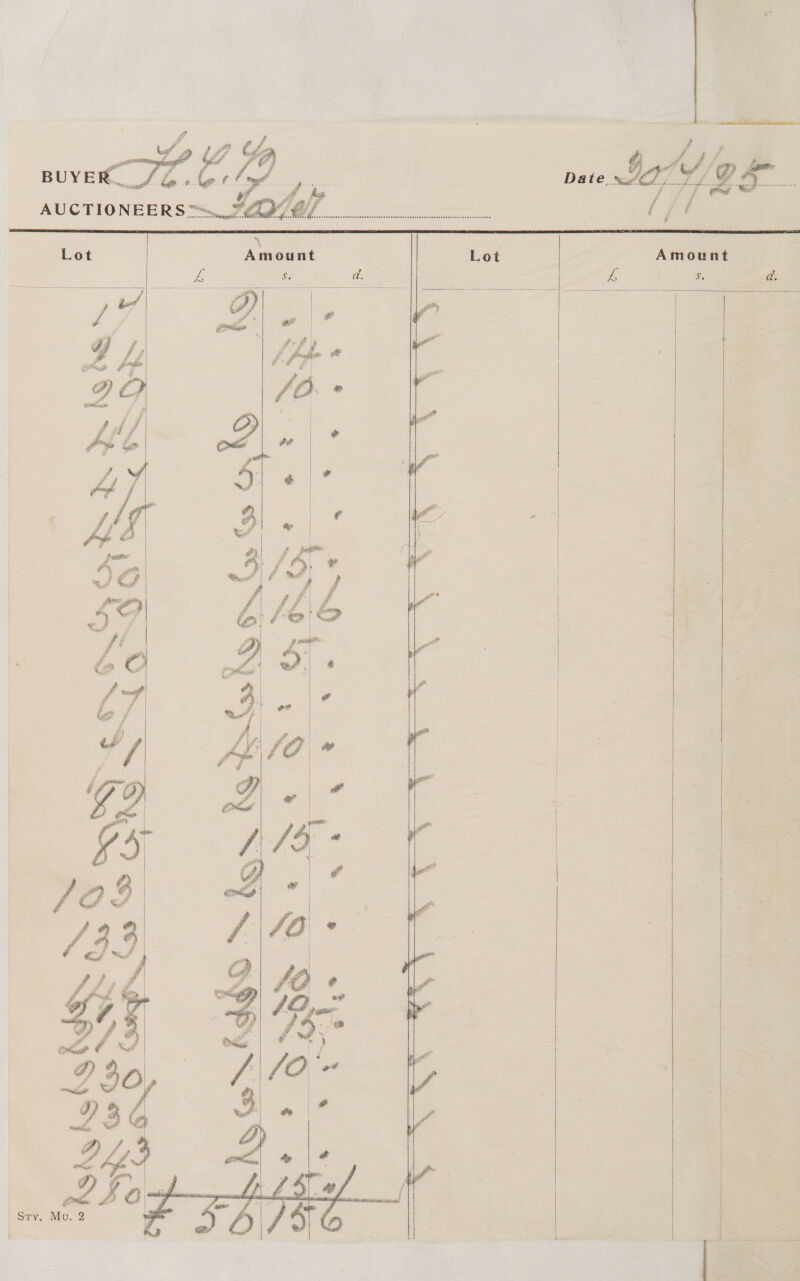 BUYER
Date 30/4/95
AUCTIONEERS
Lot Amount Lot Amount
£ s. d. £ s. d.
17 2 . .
24 14 .
29 10 .
46 2 . .
47 5 . .
48 3 . .
50 3 15 .
59 6 16 6
60 2 5 .
67 3 . .
71 4 10 .
82 2 . .
85 1 15 .
103 2 . .
133 1 10 .
2 10 .
2 10 .
213 2 15 .
230 1 10 .
236 3 . .
243 2 . .
250
Sty. Mu. 2 £ 56 15 6